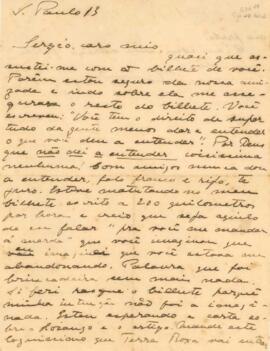 S. Paulo 13
Sergio, caro mio,
quasi que as-
sustei-me com o bilhete de você.
Porém estou seguro da nossa ami-
zade e indo sobre ela me asse-
gurava o resto do bilhete. Você
escreveu: Você tem o direito de supor
tudo da gente menos dar a entender
o que você deu a entender". Por Deus
que não dei a entender coisissima
nenhuma. Com amigos nunca dou
a entender, falo franco e rijo, te
juro. Estava matutando no meu
bilhete escrito a 200 quilometros
por hora e creio que seja aquilo
de eu falar "pra você me mandar
à merda" que você imaginou que
eu imaginei que você estava me
abandonando. Palavra que foi
brincadeira sem mais nada.
Si feri rasgue o bilhete porquê
minha intuição não foi a
nada. Estou esperando a carta
sobre Losango e o artigo. Mande este
que Terra Roxa vai